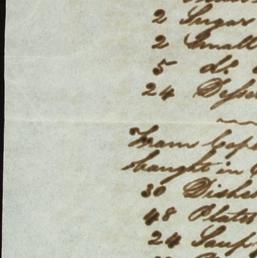 2 Sugar
2 Small
5 do.
24 Desse
From Cope
bought in
30 Dishe
48 Plates
24 Soup